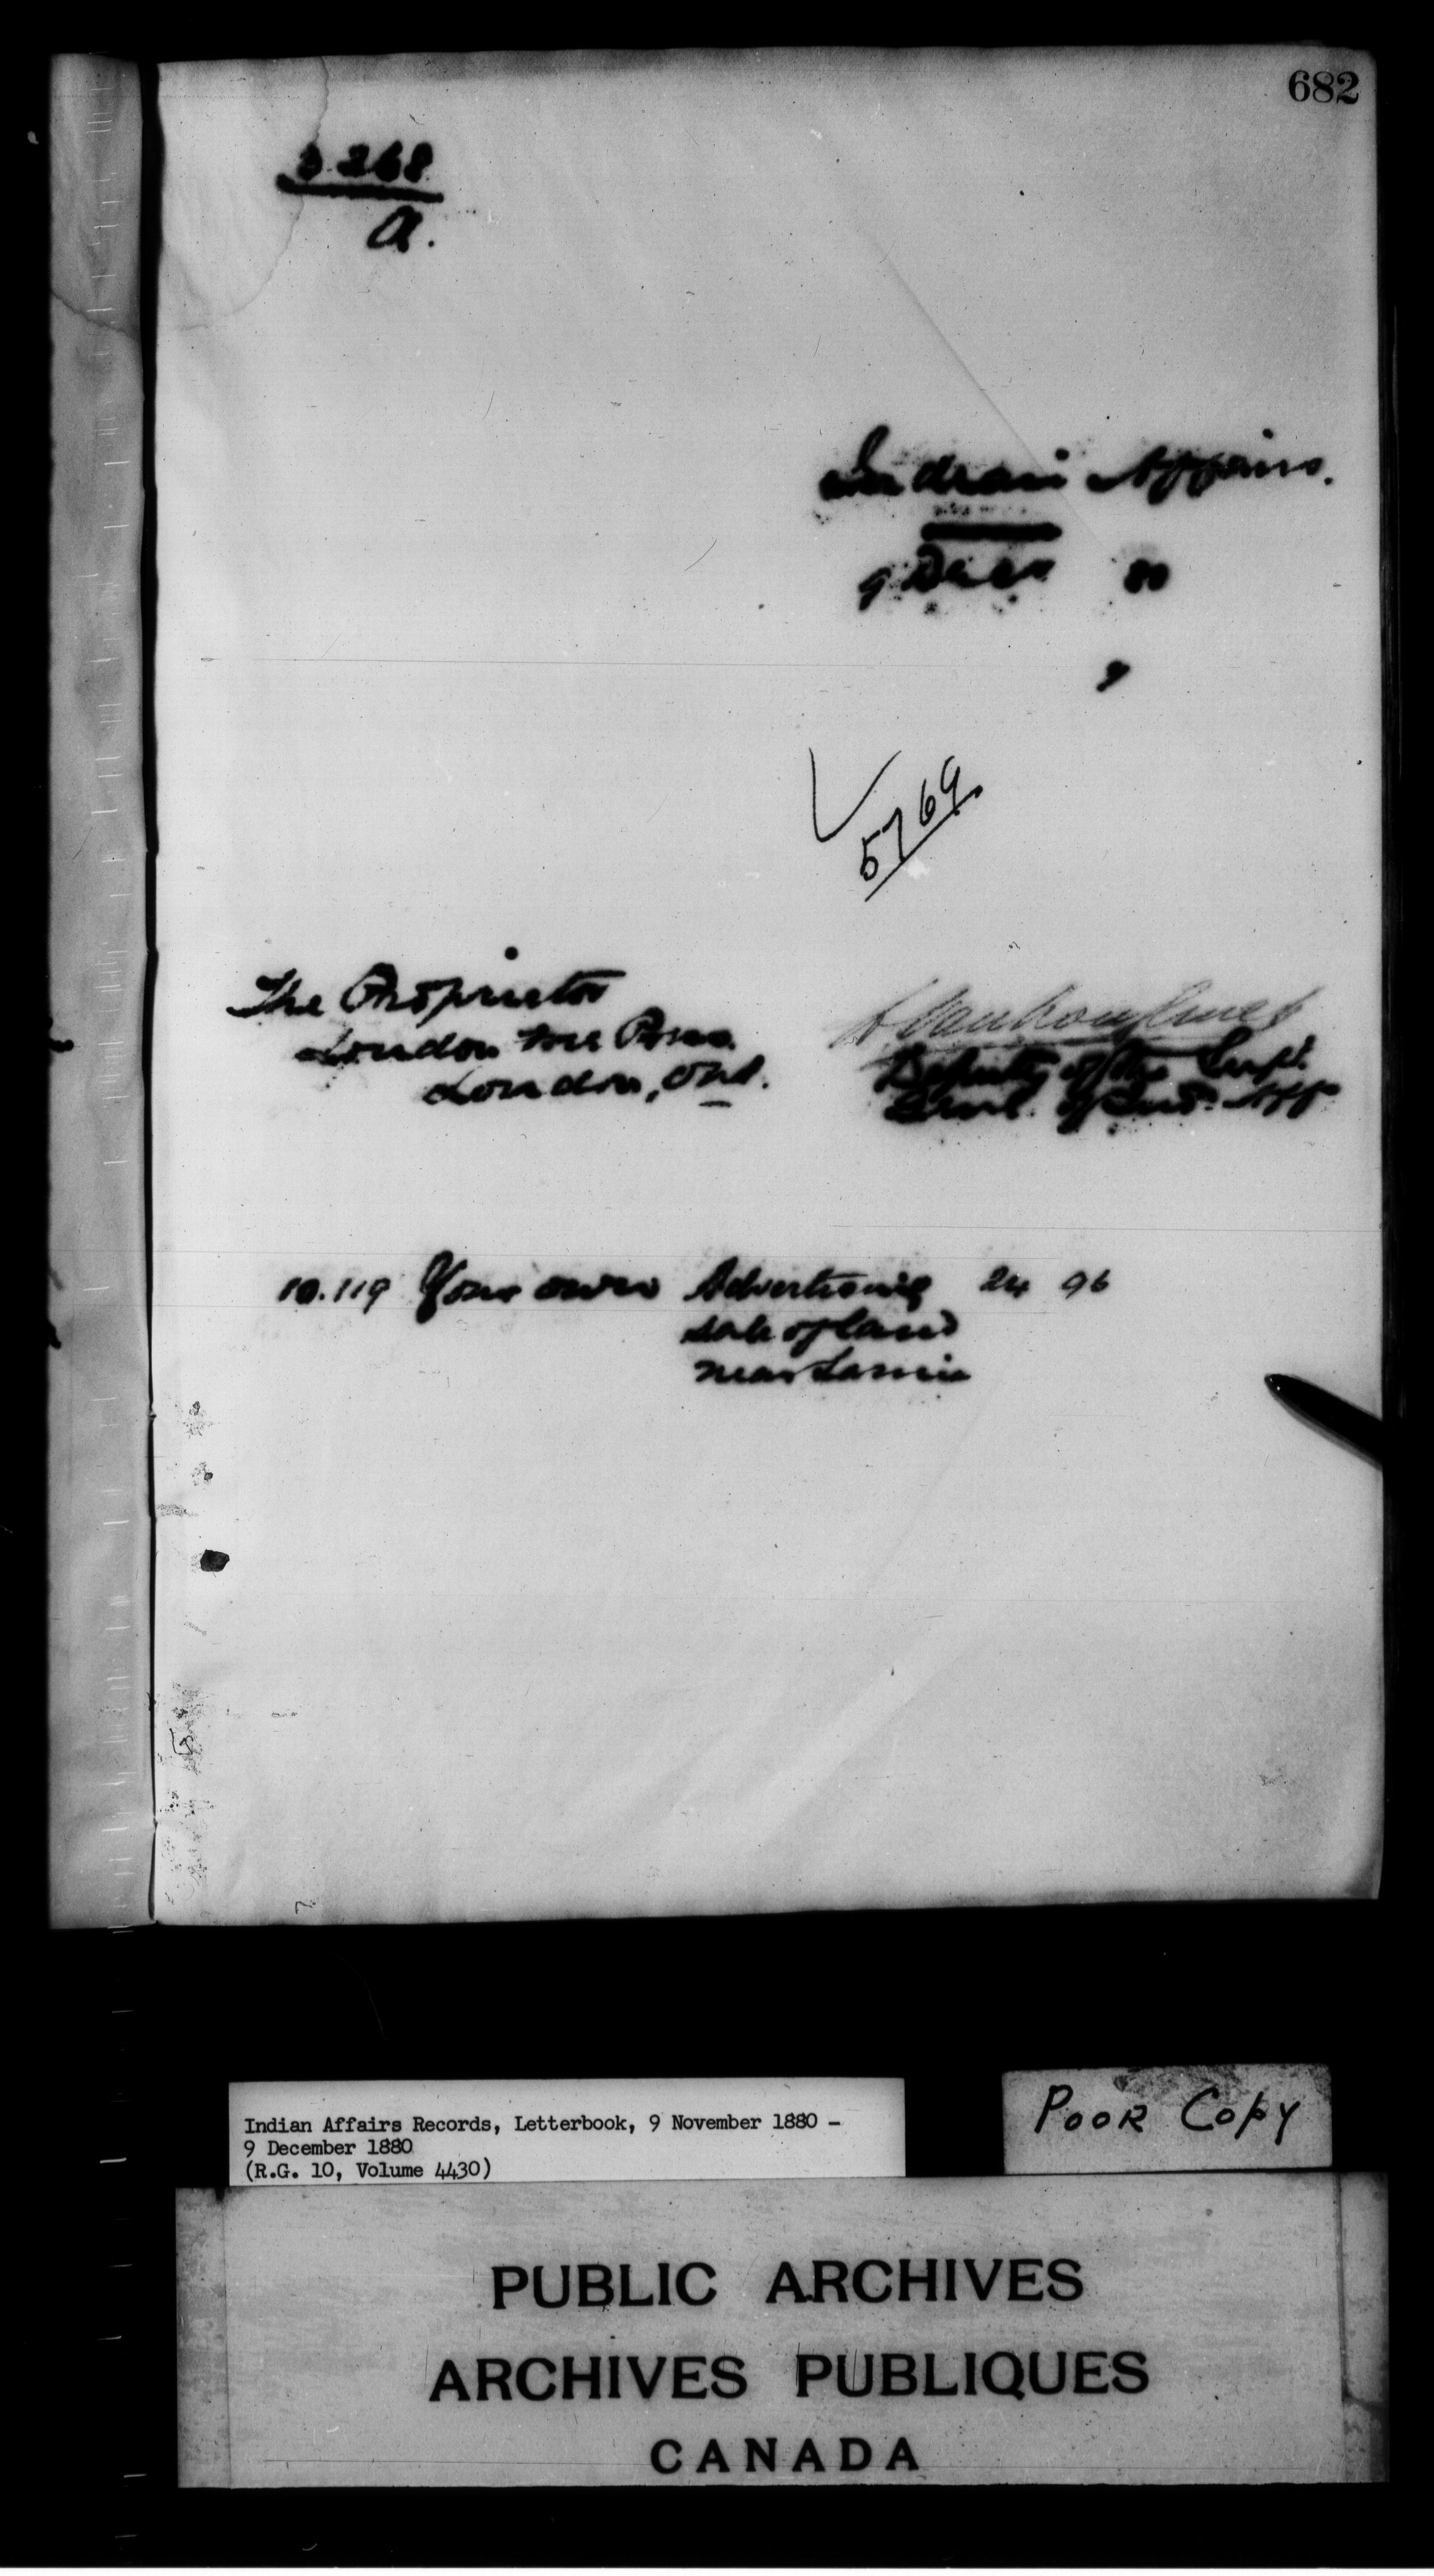 682
3268
A.
Indian Affairs.
9 Decr 80
9
5769
The Proprietor
London Free Press
London, Ont.
L Vankoughnet
Deputy of the Supt.
Genl. of Ind. Aff
10.119 Your own Advertising 24 96
sale of land
near Sarnia
Indian Affairs Records, Letterbook, 9 November 1880 -
9 December 1880
(R.G. 10, Volume 4430)
POOR COPY
PUBLIC ARCHIVES
ARCHIVES PUBLIQUES
CANADA